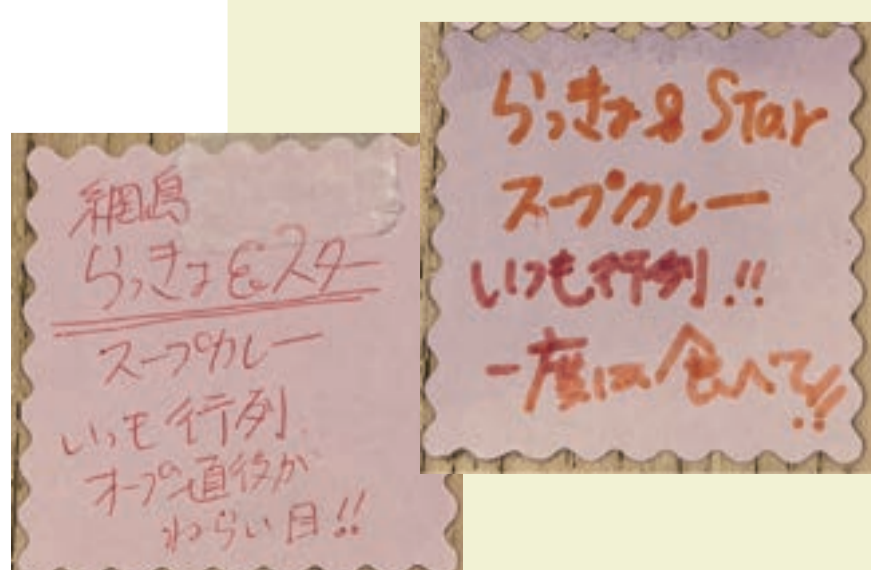 綱島
らっきょ&スター
スープカレー
いつも行列
オープン直後が
ねらい目!!
らっきょ&Star
スープカレー
いつも行列!!
一度は食べて!!